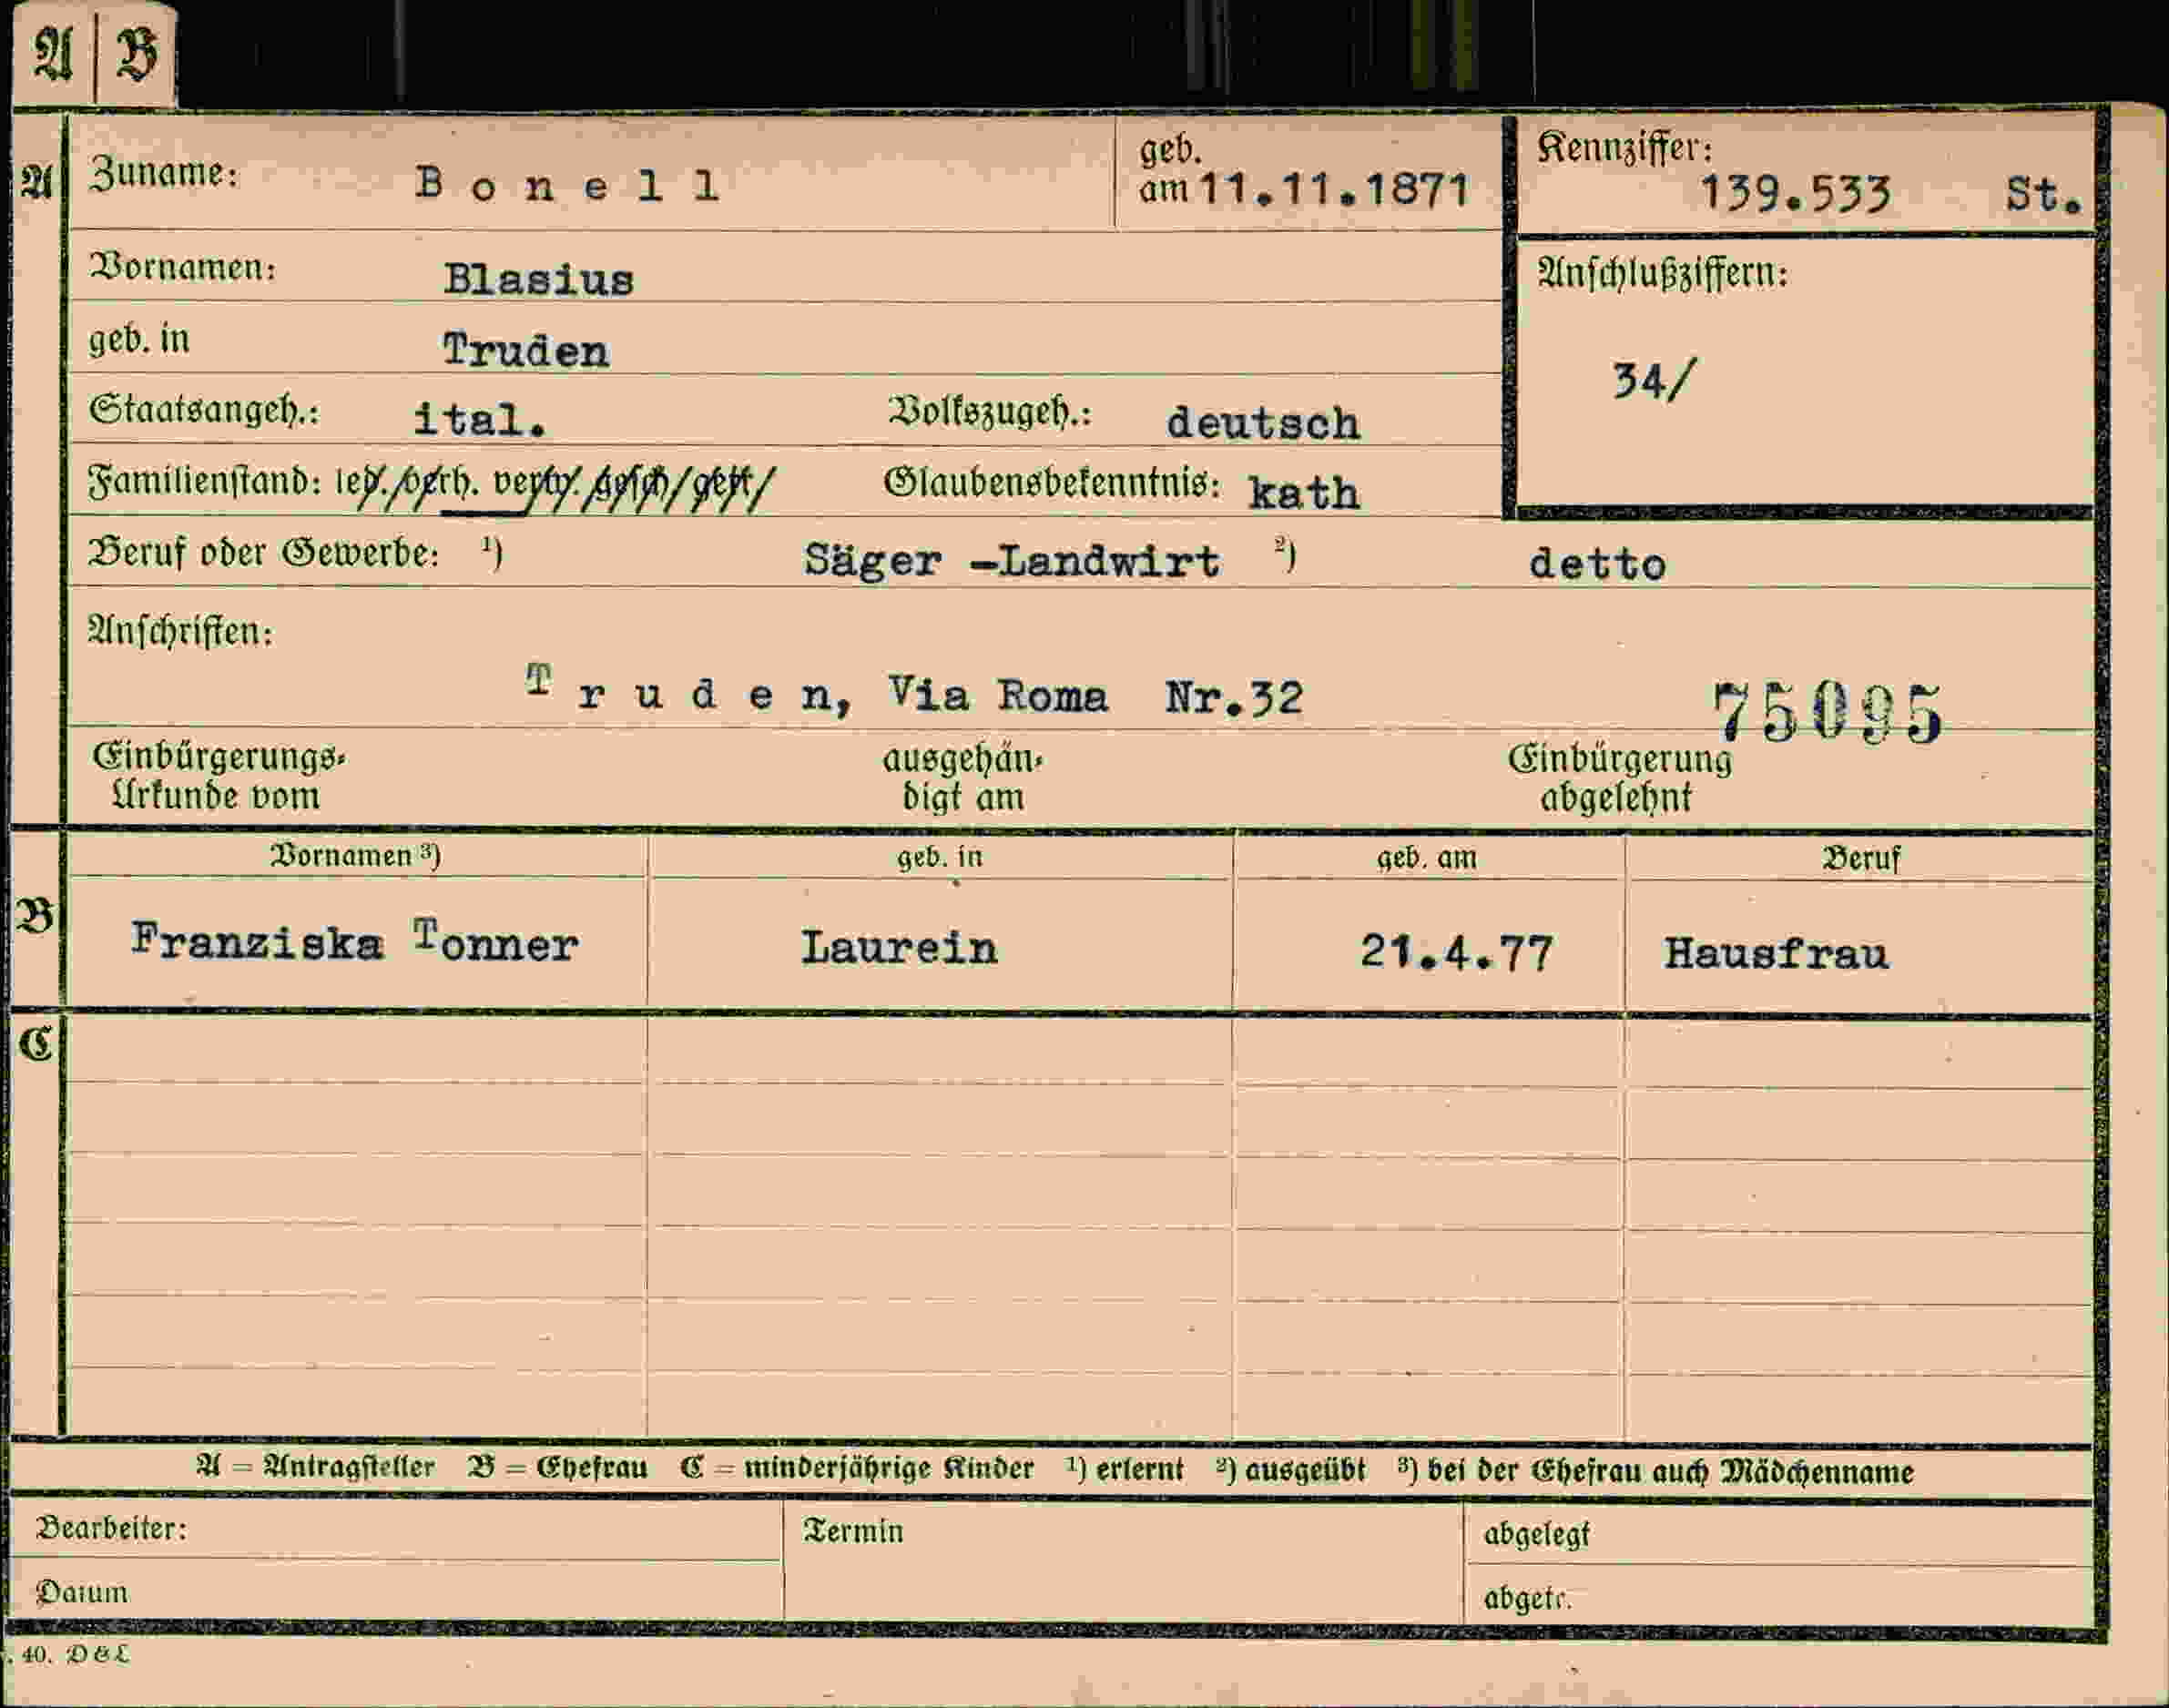 A | B
A Zuname: Bonell geb. am 11.11.1871 Kennziffer: 139.533 St.
Vornamen: Blasius Anschlußziffern:
geb. in Truden 34/
Staatsangeh.: ital. Volkszugeh.: deutsch
Familienstand: led./verh. verw. gesch/getr/ Glaubensbekenntnis: kath
Beruf oder Gewerbe: ¹) Säger -Landwirt ²) detto
Anschriften:
Truden, Via Roma Nr.32 75095
Einbürgerungs- ausgehän- Einbürgerung
Urkunde vom digt am abgelehnt
Vornamen ³) geb. in geb. am Beruf
B Franziska Tonner Laurein 21.4.77 Hausfrau
C
A = Antragsteller B = Ehefrau C = minderjährige Kinder ¹) erlernt ²) ausgeübt ³) bei der Ehefrau auch Mädchenname
Bearbeiter: Termin abgelegt
Datum abgetr.
. 40. D & L